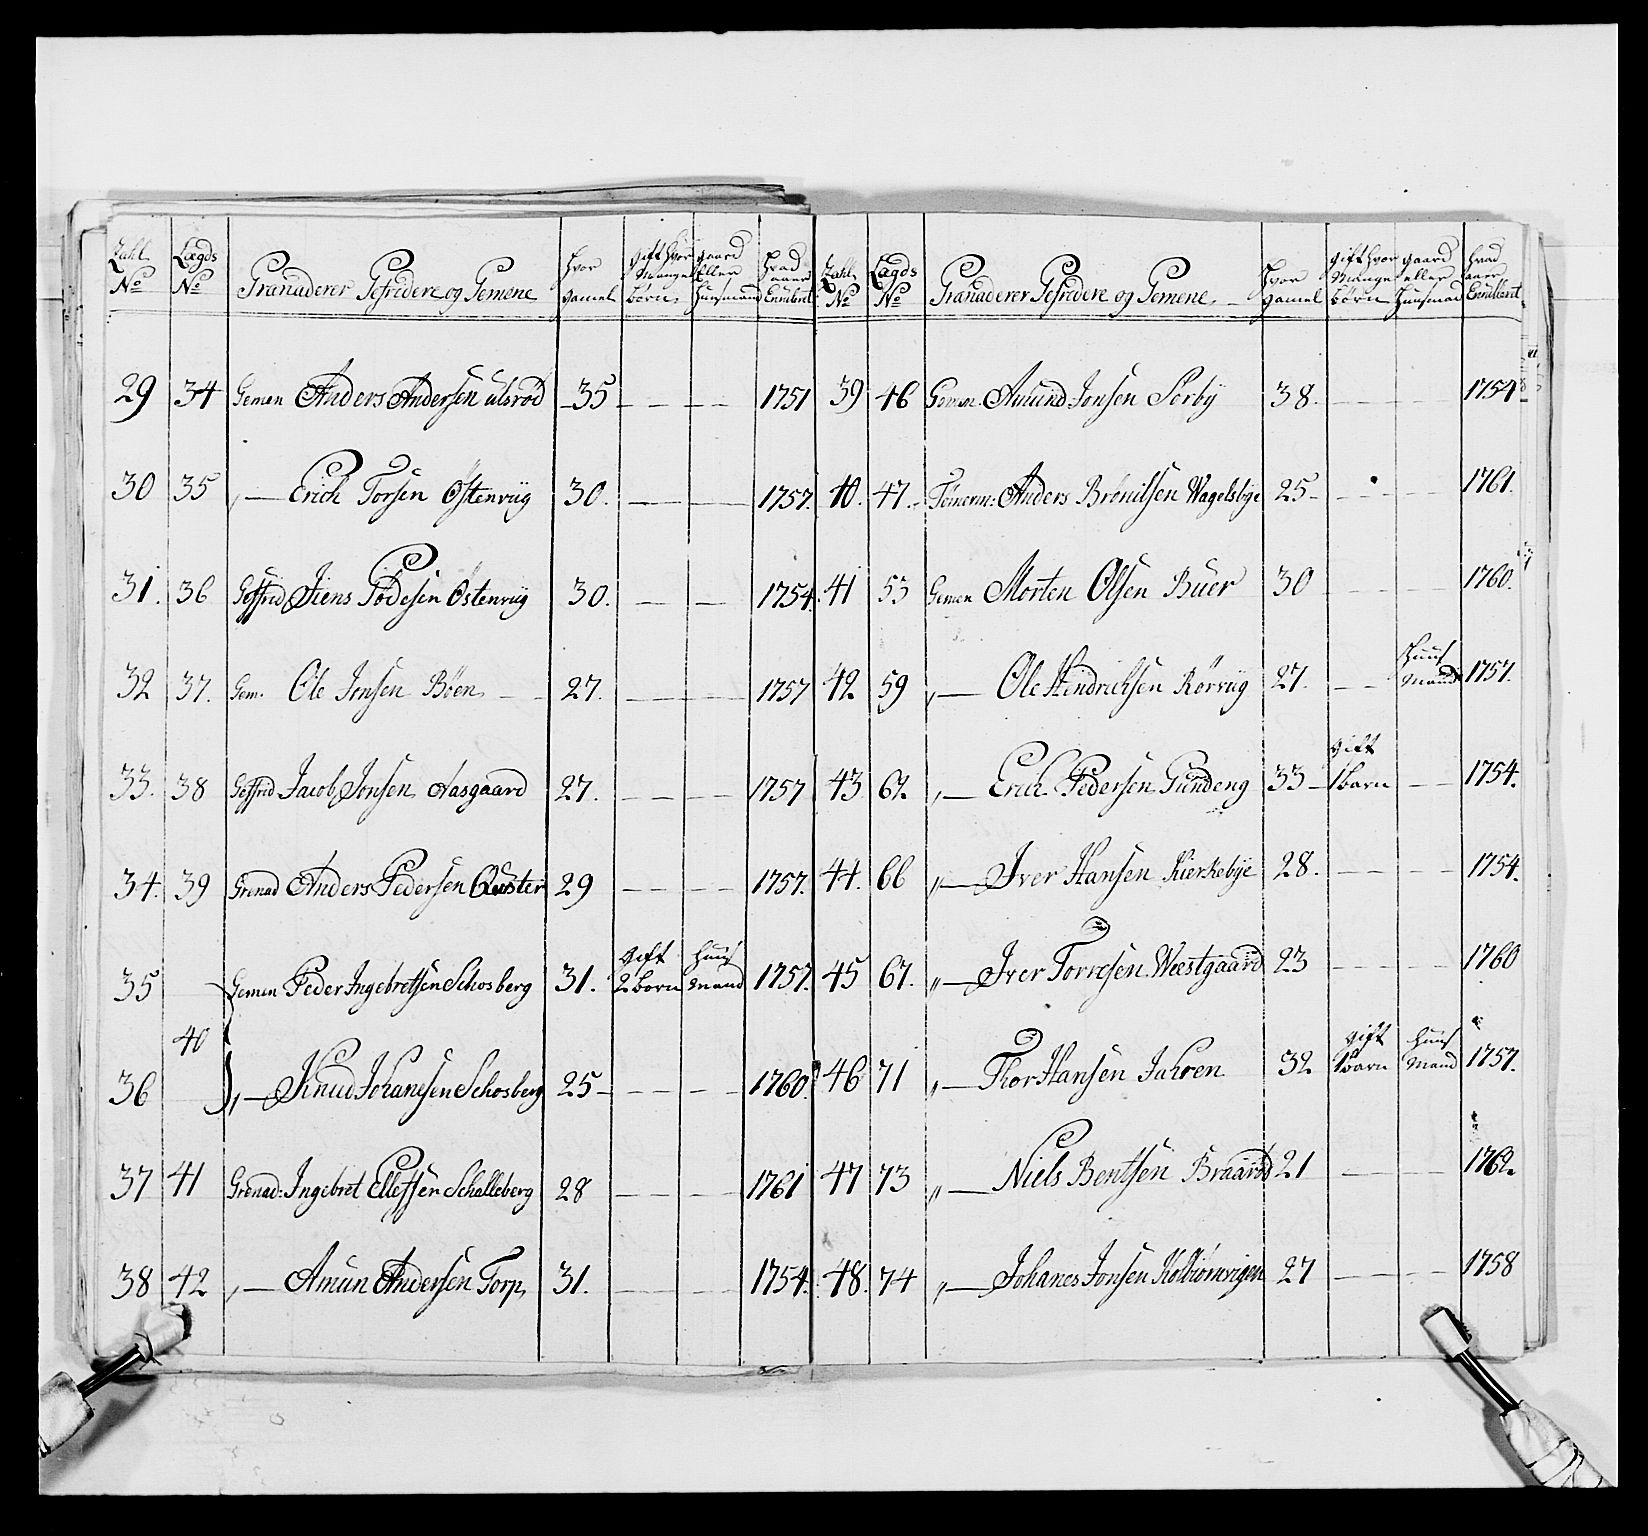 Zahl No | Lægds No | Granaderer Gefridere og Gemene | Hvor gamel | gift hvor Mange børn | gaard Eller Huusmand | Hvad aar Enrulleret
29 | 34 | Gemen Anders Andersen ulsrød | 35 | — — | — | 1751
30 | 35 | „— Erich Torsen Østenviig | 30. | — — | — | 1757.
31. | 36 | Geffrid Jiens Pødesen Østenviig | 30. | — | — | 1754.
32 | 37. | Gem. Ole Jonsen Bøen | 27. | — — | — | 1757
33. | 38 | Geffrid Jacob Jonsen Aasgaard | 27. | — — | — | 1757
34. | 39 | Grenad Anders Pedersen | 29 | — — | — | 1757.
35 | 40 | Gemen Peder Ingebretsen Schosberg | 31. | gift 2 børn | Huus Mand | 1757.
36 | „— Knud Johansen Schosberg | 25 | — — | — | 1760.
37 | 41 | Grenad: Ingebret Ellefsen Schalleberg | 28 | — — | — | 1761
38 | 42 | „— Amun Andersen Torp | 31. | — — | — | 1754.
Zahl No | Lægds No | Granaderer Gefridere og Gemene | Hvor gamel | gift hvor Mange børn | gaard eller Huusmand | Hvad aar Enrullerit
39 | 46 | Gemen. Amund Jonsen Sørby | 38. | — — | — | 1754
40. | 47. | Tømerm: Anders Wagelsbye | 25 | — | — | 1761.
41 | 53 | Gemen Morten Olsen Buer | 30 | — — | — | 1760.
42 | 59 | „— Ole Hendrichsen Rørviig | 27. | — — | Huus Mand | 1757.
43 | 62. | „— Erich Pedersen Gundeng | 33 | gift 1 barn | — | 1754.
44. | 66 | „— Iver Hansen Kierkebye | 28. | — — | — | 1754.
45 | 67. | „— Iver Torresen Westgaard | 23 | — — | — | 1760
46 | 71 | „— Thor Hansen Jahren | 32 | gift 1 barn | Huus Mand | 1757.
47 | 73 | „— Niels Bentsen Braarød | 21 | — | — | 1762.
48. | 74 | „— Johanes Jonsen Kolbiørnvigen | 27 | — — | — | 1758